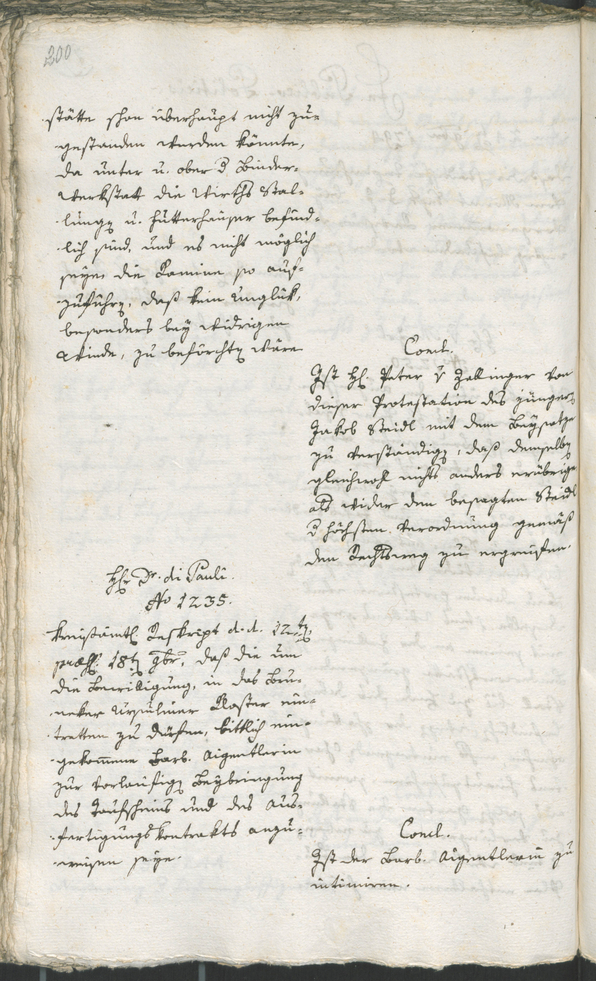 200
stätte schon überhaupt nicht zu-
gestanden werden könnte,
da unter u. ober d Binder-
werkstatt die Wirths Stal-
lung u. Futterhäuser befind-
lich sind, und es nicht möglich
seye, die Kamine so auf-
zuführn, daß kein Unglük,
besonders bey widrigen
Winde, zu beförchtn wäre
Concl.
Ist H. Peter v Zallinger von
dieser Protestation des jüngern
Jakob Steidl mit dem Beysatze
zu verständign, daß demselbn
gleichwohl nichts anders erübrige
als wider den besagten Steidl
d höchsten Verordnung gemäß
den Rechtsweg zu ergreifen.
Hr Dr. di Pauli.
No 1235.
Kreisämtl. Reskript d. d. 12tn
praes. 18tn 9br, daß die um
die Bewilligung, in das Bru-
neker Ursuliner Kloster ein-
tretten zu dürfen, bittlich ein-
gekommene Barb. Aigentlerin
zur vorläufign Beybringung
des Taufscheins und des Aus-
fertigungskontrakts anzu-
weisen seye.
Concl.
Ist der Barb. Aigentlerin zu
intimiren.